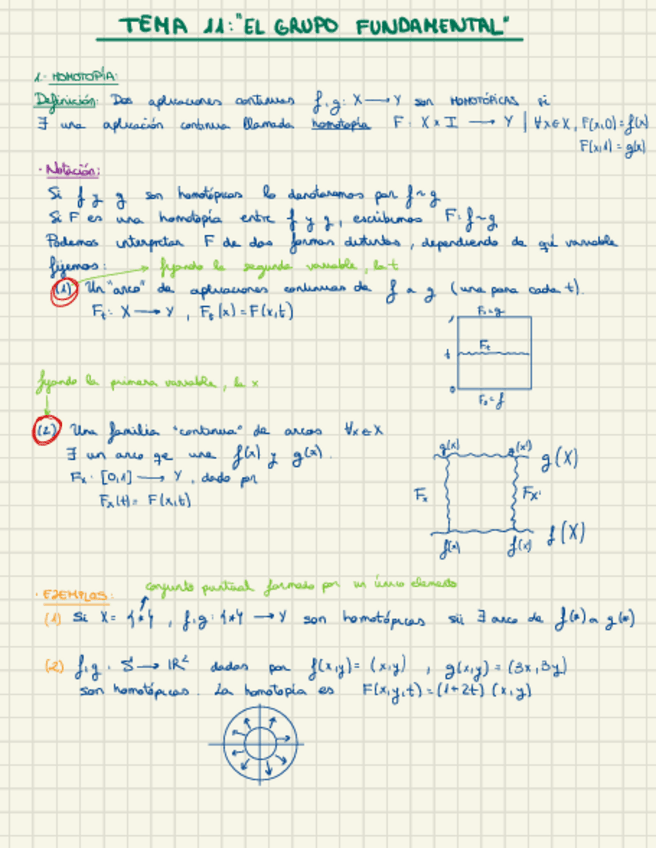 TEMA 11: "EL GRUPO FUNDAMENTAL"
1.- HOMOTOPÍA:
Definición: Dos aplicaciones continuas f, g: X → Y son HOMOTÓPICAS si
∃ una aplicación continua llamada homotopía F: X × I → Y | ∀x∈X, F(x,0) = f(x)
F(x,1) = g(x)
· Notación:
Si f y g son homotópicas lo denotaremos por f ~ g
Si F es una homotopía entre f y g, escribimos F: f ~ g
Podemos interpretar F de dos formas distintas, dependiendo de qué variable
fijemos: fijando la segunda variable, la t
(1) Un "arco" de aplicaciones continuas de f a g (una para cada t).
Ft: X → Y, Ft(x) = F(x,t)
1
F1 = g
t
Ft
0
F0 = f
fijando la primera variable, la x
(2) Una familia "continua" de arcos ∀x∈X
∃ un arco qe une f(x) y g(x).
Fx: [0,1] → Y, dado por
Fx(t) = F(x,t)
g(x) g(x') g(X)
Fx Fx'
f(x) f(x') f(X)
· EJEMPLOS: conjunto puntual formado por un único elemento
(1) Si X = {*}, f, g: {*} → Y son homotópicas sii ∃ arco de f(*) a g(*)
(2) f, g: S¹ → ℝ² dadas por f(x,y) = (x,y), g(x,y) = (3x,3y)
son homotópicas. La homotopía es F(x,y,t) = (1+2t) (x,y)